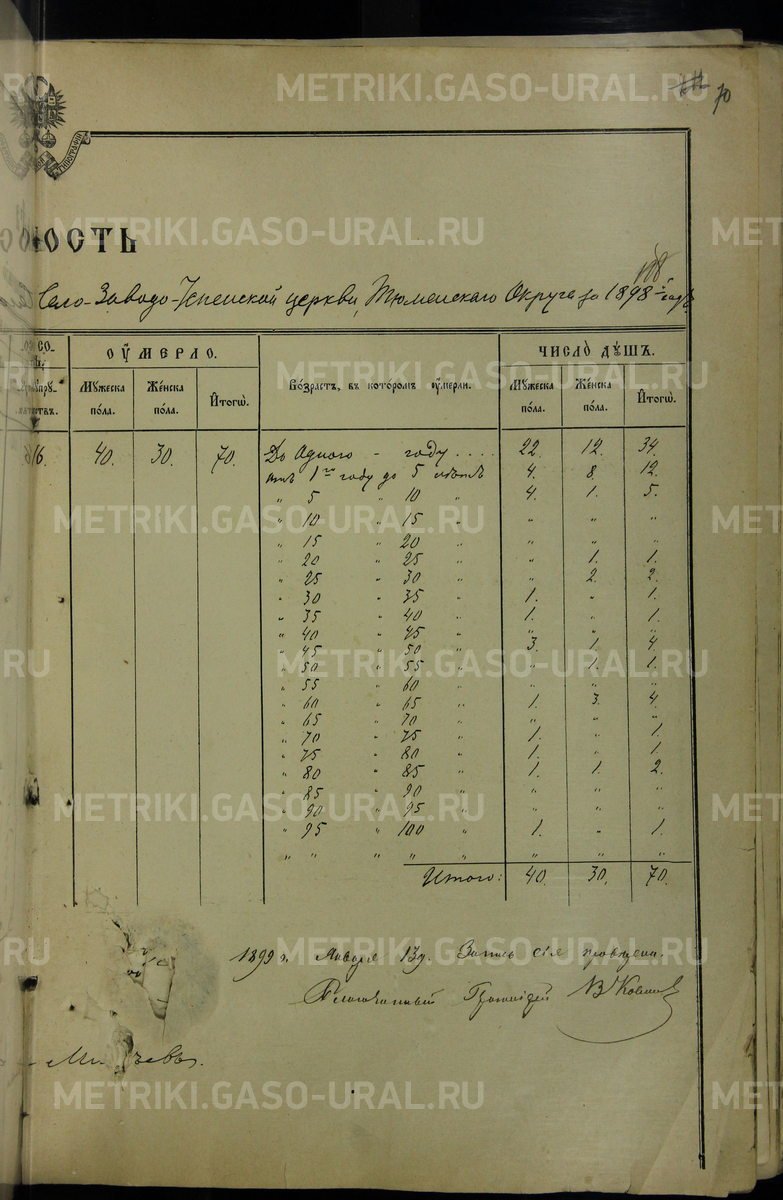 METRIKI.GASO-URAL.RU
70
ОСТЬ
Село-Заводо-Успенской церкви, Тюменскаго Округа за 1898 годъ
ОУ҆МЕРЛО. ЧИСЛО ДУШЪ.
Мужеска пола. Женска пола. Итогѡ. Возрастъ, въ которомъ оумерли. Мужеска пола. Женска пола. Итогѡ.
40. 30. 70. До одного - году.... 22. 12. 34.
отъ 1го году до 5 лѣтъ 4. 8. 12.
" 5 " 10 " 4. 1. 5.
" 10 " 15 " " " "
" 15 " 20 "
" 20 " 25 " " 1. 1.
" 25 " 30 " " 2. 2.
" 30 " 35 " 1. " 1.
" 35 " 40 " 1. " 1.
" 40 " 45 " " " "
" 45 " 50 " 3. 1. 4.
" 50 " 55 " " 1. 1.
" 55 " 60 " " " "
" 60 " 65 " 1. 3. 4.
" 65 " 70 " " " "
" 70 " 75 " 1. " 1.
" 75 " 80 " 1. " 1.
" 80 " 85 " 1. 1. 2.
" 85 " 90 " " " "
" 90 " 95 " " " "
" 95 " 100 " 1. " 1.
" " " " " " " "
Итого: 40. 30. 70.
1899 г. Января 13 д. Запись сія провѣрена.
Благочинный Протоіерей